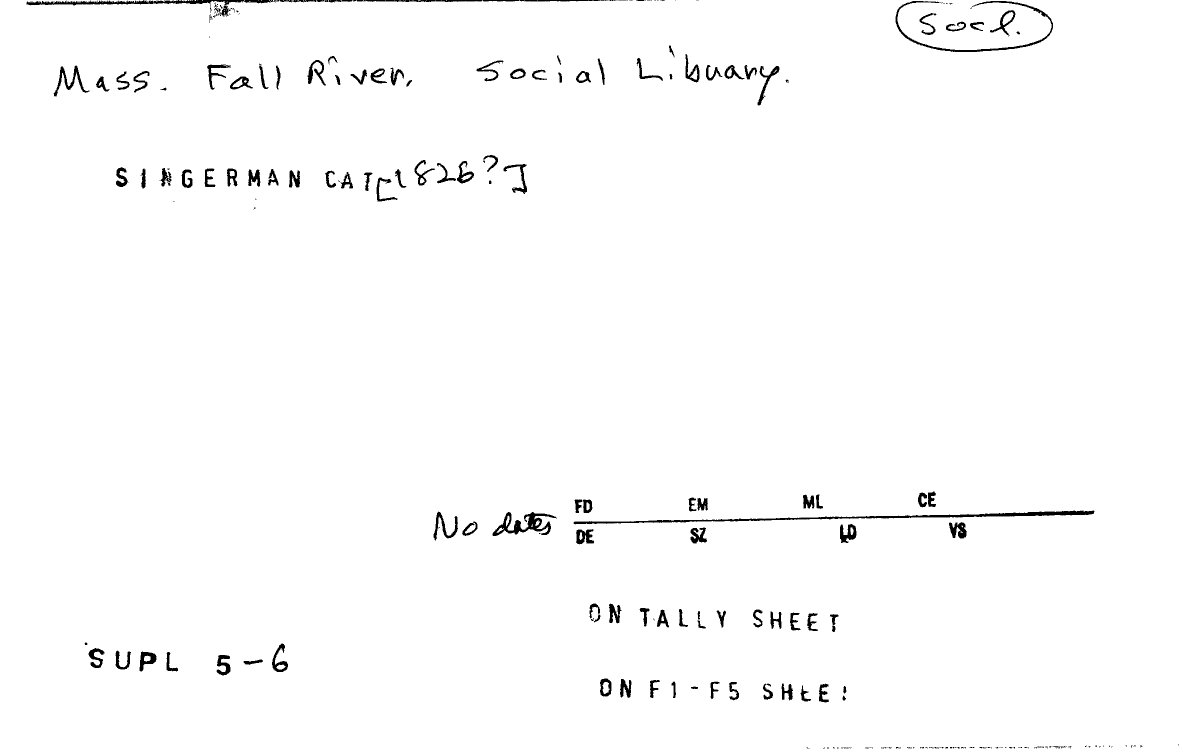 Socl.
Mass. Fall River. Social Library.
SINGERMAN CAT[1826?]
FD EM ML CE
No dates
DE SZ LD VS
ON TALLY SHEET
SUPL 5-6
ON F1-F5 SHEET